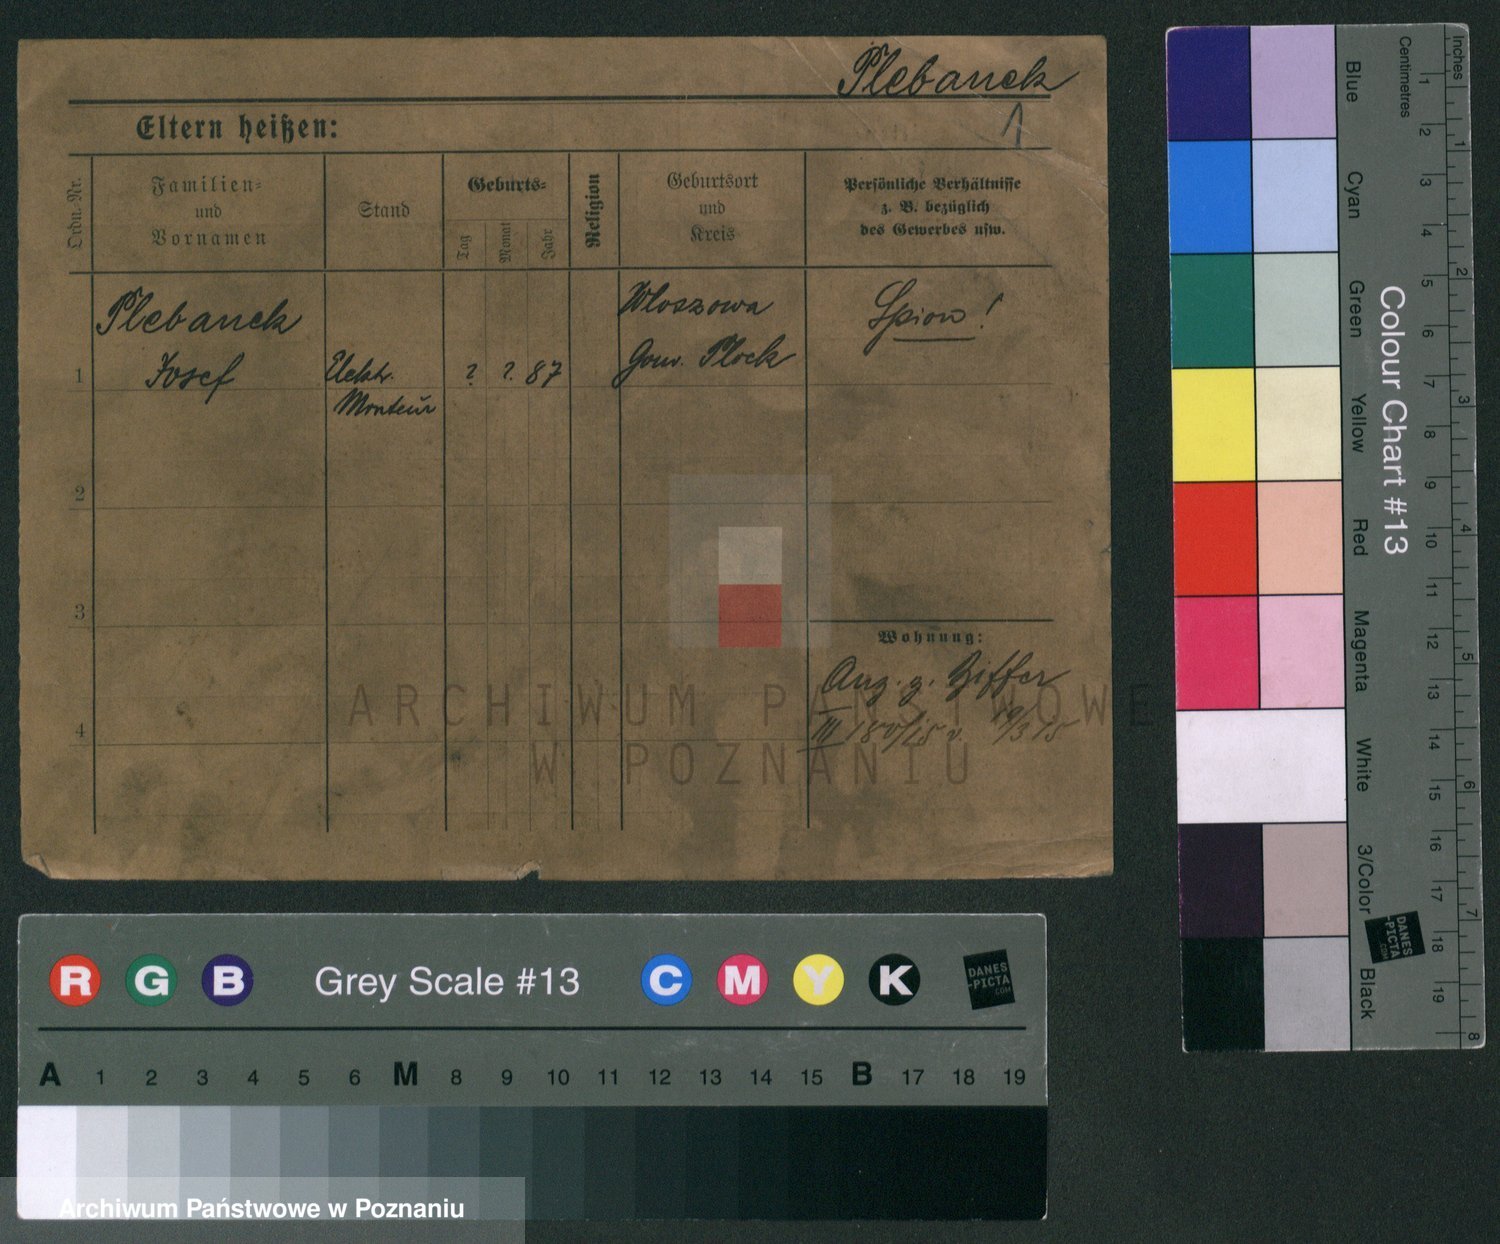 Plebanek
1
Eltern heißen:
Ordn.-Nr.
Familien-
und
Vornamen
Stand
Geburts-
Tag
Monat
Jahr
Religion
Geburtsort
und
Kreis
Persönliche Verhältnisse
z. B. bezüglich
des Gewerbes usw.
1
Plebanek
Josef
Elektr.
Monteur
? ? 87
Wloszowa
Gouv. Plock
Spion!
2
3
4
Wohnung:
Ang. z. Ziffer
III 180/15 v. 19/3 15
ARCHIWUM PAŃSTWOWE
W POZNANIU
Colour Chart #13
Blue
Cyan
Green
Yellow
Red
Magenta
White
3/Color
Black
Centimetres
1 2 3 4 5 6 7 8 9 10 11 12 13 14 15 16 17 18 19
Inches
1 2 3 4 5 6 7 8
DANES
-PICTA
.COM
R G B
Grey Scale #13
C M Y K
DANES
-PICTA
.COM
A 1 2 3 4 5 6 M 8 9 10 11 12 13 14 15 B 17 18 19
Archiwum Państwowe w Poznaniu